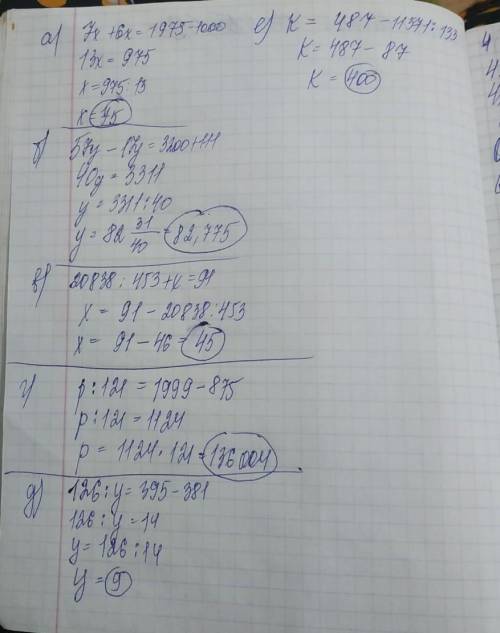 а) 7x + 6x = 1975 - 1000
13x = 975
x = 975 : 13
x = 75
б) 57y - 17y = 3200 + 111
40y = 3311
y = 3311 : 40
y = 82 31/40 = 82,775
в) 20838 : 453 + x = 91
x = 91 - 20838 : 453
x = 91 - 46 = 45
г) p : 121 = 1999 - 875
p : 121 = 1124
p = 1124 · 121 = 136004
д) 126 : y = 395 - 381
126 : y = 14
y = 126 : 14
y = 9
е) K = 487 - 11571 : 133
K = 487 - 87
K = 400